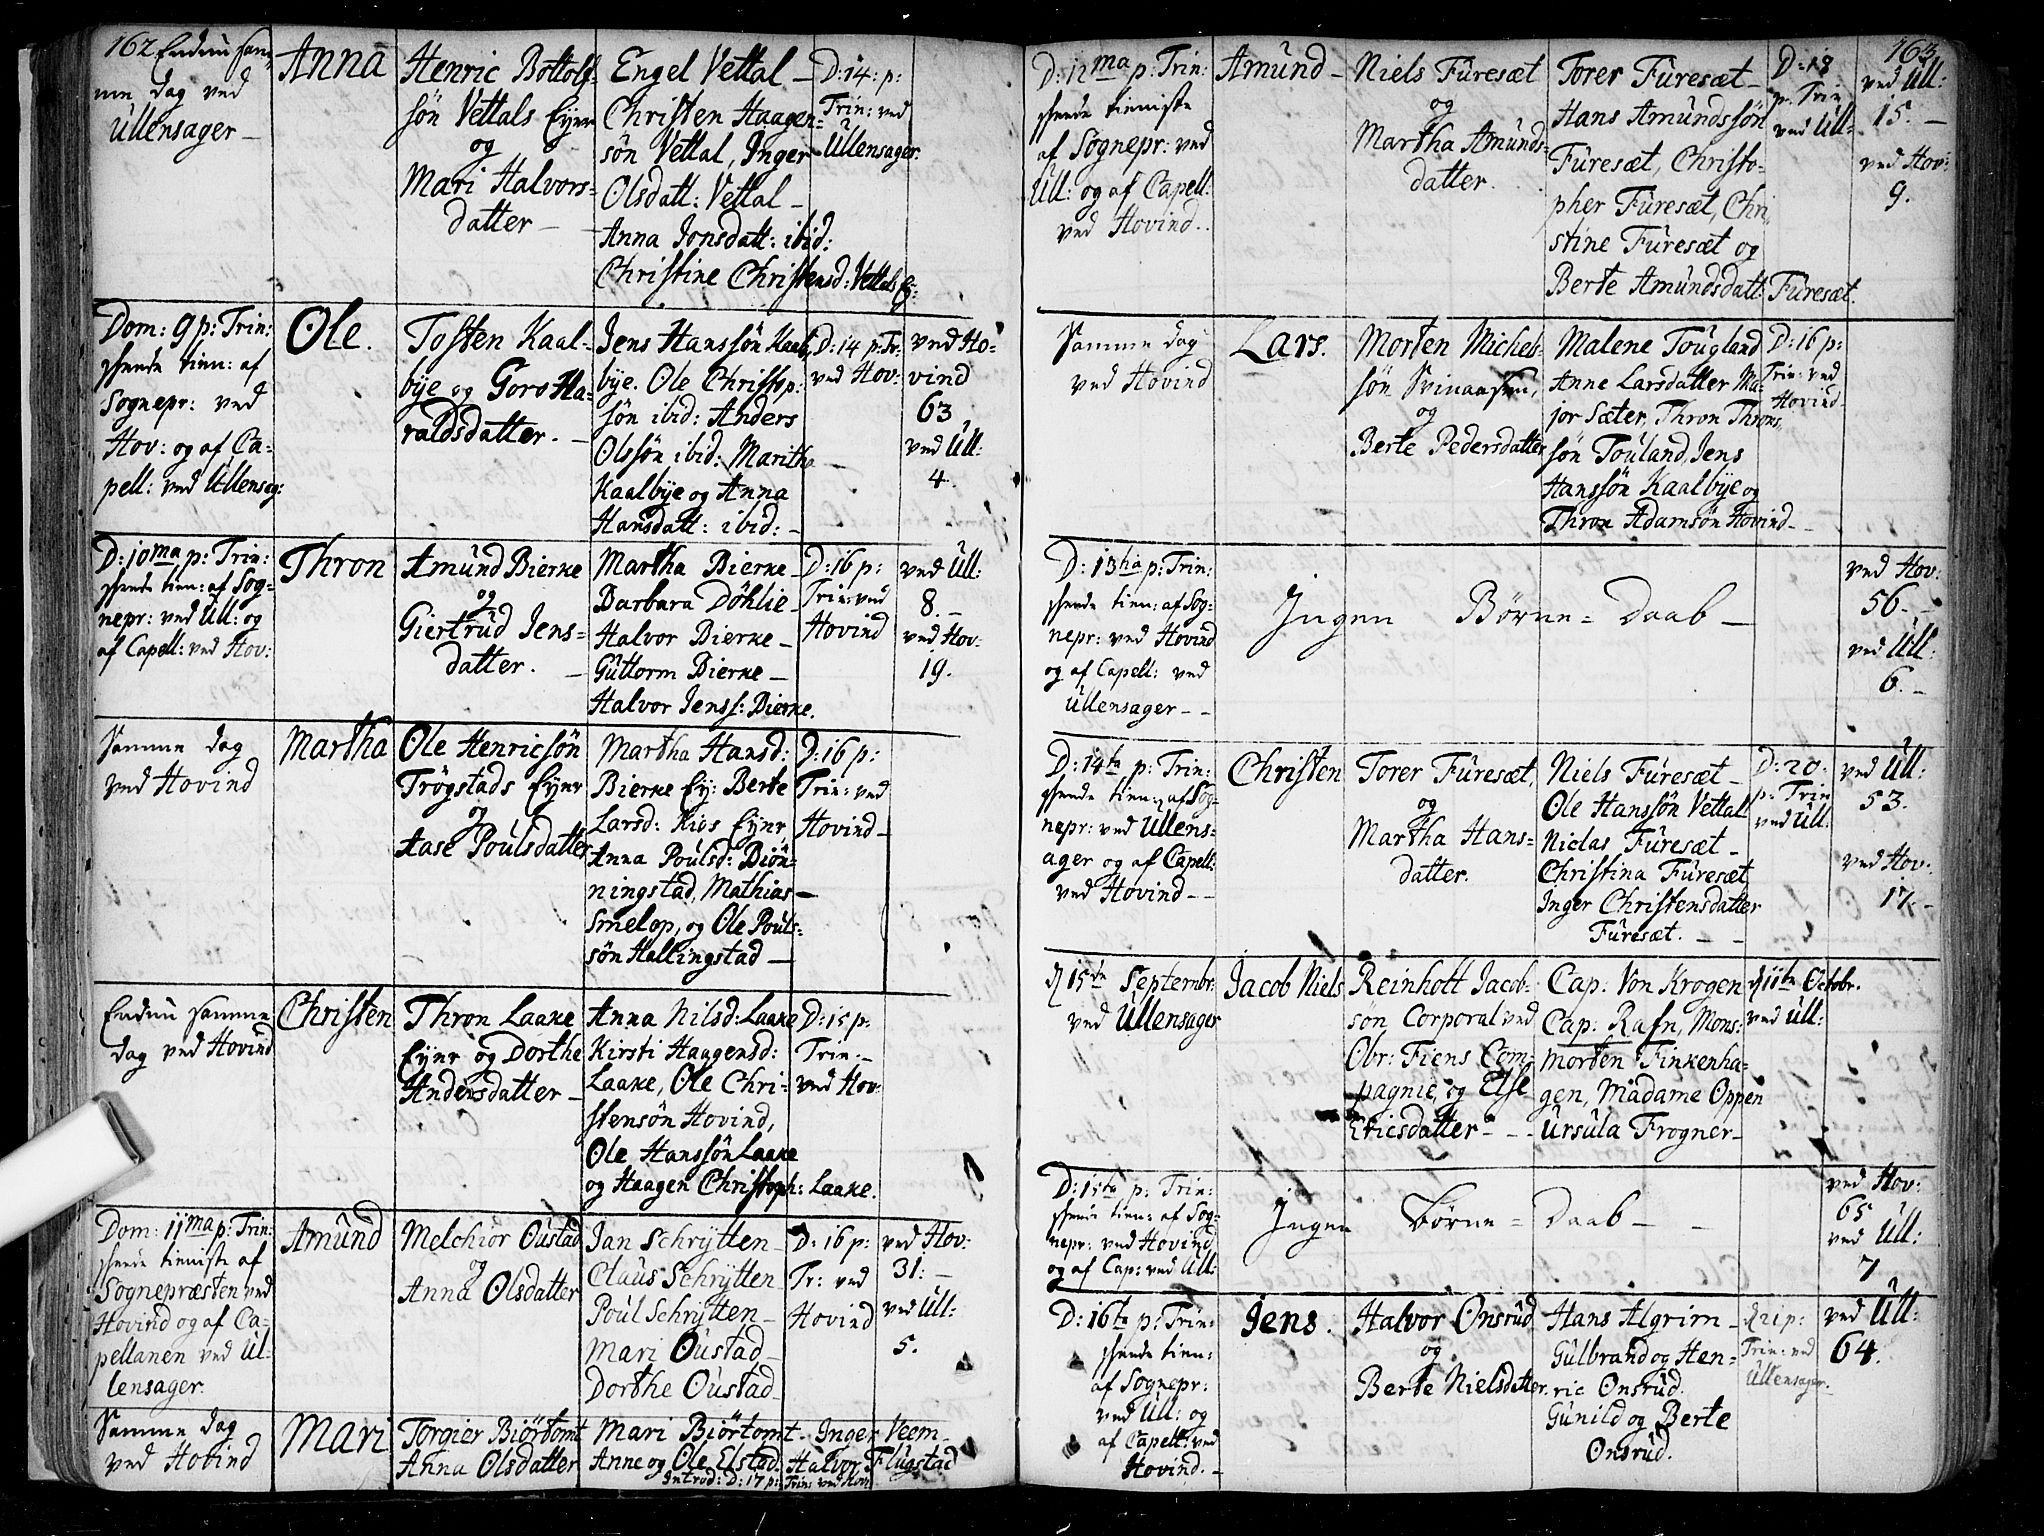 162 Endnu sam-
me dag ved
Ullensager –
Anna
Henric Bottolf-
søn Vettals Eÿnr
og
Mari Halvors-
datter –
Engel Vettal –
Christen Haagen-
søn Vettal, Inger
Olsdatt: Vettal –
Anna Jonsdatt: ibid:
Christine Christensd: Vettals Eÿ:
D: 14: p:
Trin: ved
Ullensager.
Dom: 9 p: Trin:
tien: af
Sognepr: ved
Hov: og af Ca-
pell: ved Ullensag:
Ole.
Tosten Kaal-
bÿe og Goro Ha-
raldsdatter. –
Jens Hanssøn Kaal-
bÿe. Ole Christop:
søn ibid: Anders
Olssøn ibid: Maritha –
Kaalbÿe og Anna
Hansdatt: ibid: –
D: 14 p: Tr:
ved Hov:
ved Ho-
vind
63
ved Ull:
4.
D: 10ma p: Trin:
tien: af Sog-
nepr: ved Ull: og
af Capell: ved Hov:
Thron
Amund Bierke
og
Giertrud Jens-
datter. –
Martha Bierke –
Barbara Döhlie –
Halvor Bierke –
Guttorm Bierke –
Halvor Jenss: Bierke.
D: 16 p:
Trin: ved
Hovind
ved Ull:
8. –
ved Hov:
19.
Samme dag
ved Hovind
Martha
Ole Henricsøn
Trögstads Eÿnr
og
Aase Poulsdatter
Martha Hansd:
Bierke Eÿ: Berte
Larsd: Kios Eÿnr
Anna Poulsd: Biön-
ningstad, Mathias –
Smelop, og Ole Pouls-
søn Hallingstad –
D: 16 p:
Trin: ved
Hovind –
Endnu samme
dag ved Hovind
Christen
Thron Laake
Eÿnr og Dorthe
Andersdatter –
Anna Nilsd: Laake
Kirsti Haagensd:
Laake, Ole Chri-
stensøn Hovind,
Ole Hanssøn Laake
og Haagen Christoph: Laake.
D: 15 p:
Trin: –
ved Hov:
Dom: 11ma p: Trin:
tieniste af
Sognepræsten ved
Hovind og af Ca-
pellanen ved Ul-
lensager.
Amund
Melchior Oustad
og
Anna Olsdatter
Jan Schrÿtten –
Claus Schrÿtten
Poul Schrÿtten –
Mari Oustad –
Dorthe Oustad –
D: 16 p:
Tr: ved
Hovind
ved Hov:
31: –
ved Ull:
5.
Samme dag
ved Hovind
Mari
Torgier Biörtomt
Anna Olsdatter
Mari Biörtomt. Inger Veem –
Anne og Ole Elstad. Halvor Flugstad
Introd: D: 17 p: Trin: ved Hov:
163
D: 12ma p: Trin:
tieniste
af Sognepr: ved
Ull: og af Capell:
ved Hovind.
Amund –
Niels Furesæt
og
Martha Amunds-
datter.
Torer Furesæt –
Hans Amundssøn
Furesæt, Christo-
pher Furesæt, Chri-
stine Furesæt og
Berte Amundsdatt: Furesæt.
D: 18
p: Trin
ved Ull:
ved Ull:
15. –
ved Hov:
9.
Samme dag
ved Hovind
Lars.
Morten Michel-
søn Svinaasen,
og
Berte Pedersdatter
Malene Tougland
Anne Larsdatter Ma-
jor Sæter, Thron Throns-
søn Touland, Jens
Hanssøn Kaalbÿe og
Thron Adamsøn Hovind –
D: 16 p:
Trin: ved
Hovind –
D: 13tia p: Trin:
tien: af Sog-
nepr: ved Hovind
og af Capell: ved
Ullensager – –
Ingen Børne-Daab –
ved Hov:
56. –
ved Ull:
6. –
D: 14ta p: Trin:
tien: af Sog-
nepr: ved Ullens-
ager og af Capell:
ved Hovind – –
Christen
Torer Furesæt,
og
Martha Hans-
datter.
Niels Furesæt –
Ole Hanssøn Vettal
Niclas Furesæt –
Christina Furesæt
Inger Christensdatter
Furesæt. – –
D: 20:
p: Trin
ved Ull:
ved Ull:
53.
ved Hov:
17. –
15de Septembr:
ved Ullensager
Jacob Niels
Reinhott Jacob-
søn Corporal ved
Obr: Fiens Com-
pagnie, og Else
Ericsdatter – –
Cap. Von Krogen
Cap: Rafn, Mons:
Morten Finkenha-
gen, Madame Oppen
Ursula Frogner –
11te Octobr.
ved Ull:
D: 15ta p: Trin:
tien: af Sog-
nepr: ved Hovind
og af Cap: ved Ull:
Ingen Børne-Daab – –
ved Hov:
65
ved Ull:
7
D: 16ta p: Trin:
tien:
af Sognepr:
ved Ull: og
af Capell: ved
Hovind. –
Jens.
Halvor Onsrud
og
Berte Nielsdatter.
Hans Algrim –
Gulbrand og Hen-
ric Onsrud.
Gunild og Berte
Onsrud.
21 p:
Trin: ved
Ullensager.
ved Ull:
64.